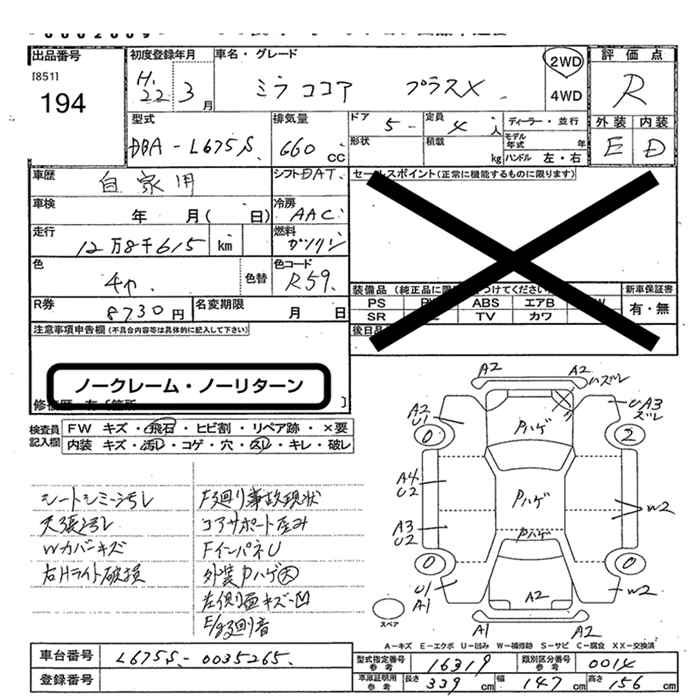 出品番号
[851]
194
初度登録年月
H.22年 3月
車名・グレード
ミラココア プラスX
2WD
4WD
評価点
R
外装 内装
E D
型式
DBA-L675S
排気量
660 cc
ドア
5
定員
4 人
形状
積載
kg
ディーラー・並行
モデル年式 年
ハンドル 左・右
車歴
自家用
シフト
DAT
車検
年 月( 日)
冷房
AAC
走行
12万8千615 km
燃料
ガソリン
色
色替
色コード
R59
R券
8730円
名変期限
月 日
セールスポイント(正常に機能するものに限ります)
装備品
PS ABS エアB
SR TV カワ
新車保証書
有・無
後日品
注意事項申告欄(不具合内容等は具体的に記入して下さい)
ノークレーム・ノーリターン
検査員記入欄
FW キズ・飛石・ヒビ割・リペア跡・×要
内装 キズ・汚レ・コゲ・穴・スレ・キレ・破レ
シートシミ汚レ
天張汚レ
Wカバーキズ
右Hライト破損
F廻り事故現状
コアサポート歪み
FインパネU
外装Pハゲ大
左側面キズ凹
E/g廻り音
A2 A2 ハズレ
A2 U1
UA3 ズレ
Pハゲ
0 2
A4 U2
Pハゲ
W2
A3 U2
Pハゲ
0 0
U1 A1
A2
W2
A1 A2
スペア
A-キズ E-エクボ U-凹み W-補修跡 S-サビ C-腐食 XX-交換済
車台番号
L675S-0035265
登録番号
型式指定番号 参考
16319
類別区分番号 参考
0014
車庫証明用 参考
長さ 339 cm 幅 147 cm 高さ 156 cm